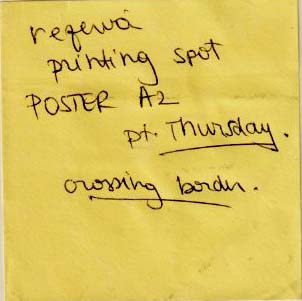 printing spot
POSTER A2
pt. Thursday.
crossing border.